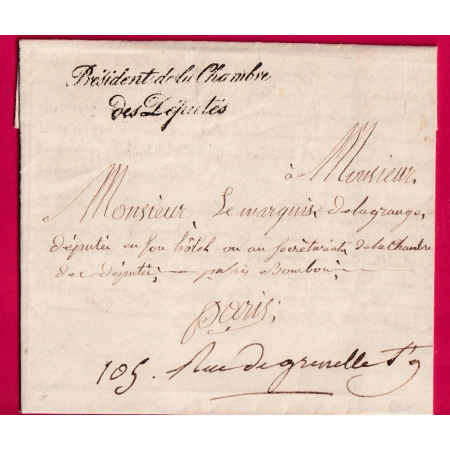 Président de la Chambre
des Députés
à Monsieur,
Monsieur Le marquis delagrange,
député en son hôtel ou au secrétariat de la Chambre
des députés, palais Bourbon,
Paris,
105. Rue de grenelle St g